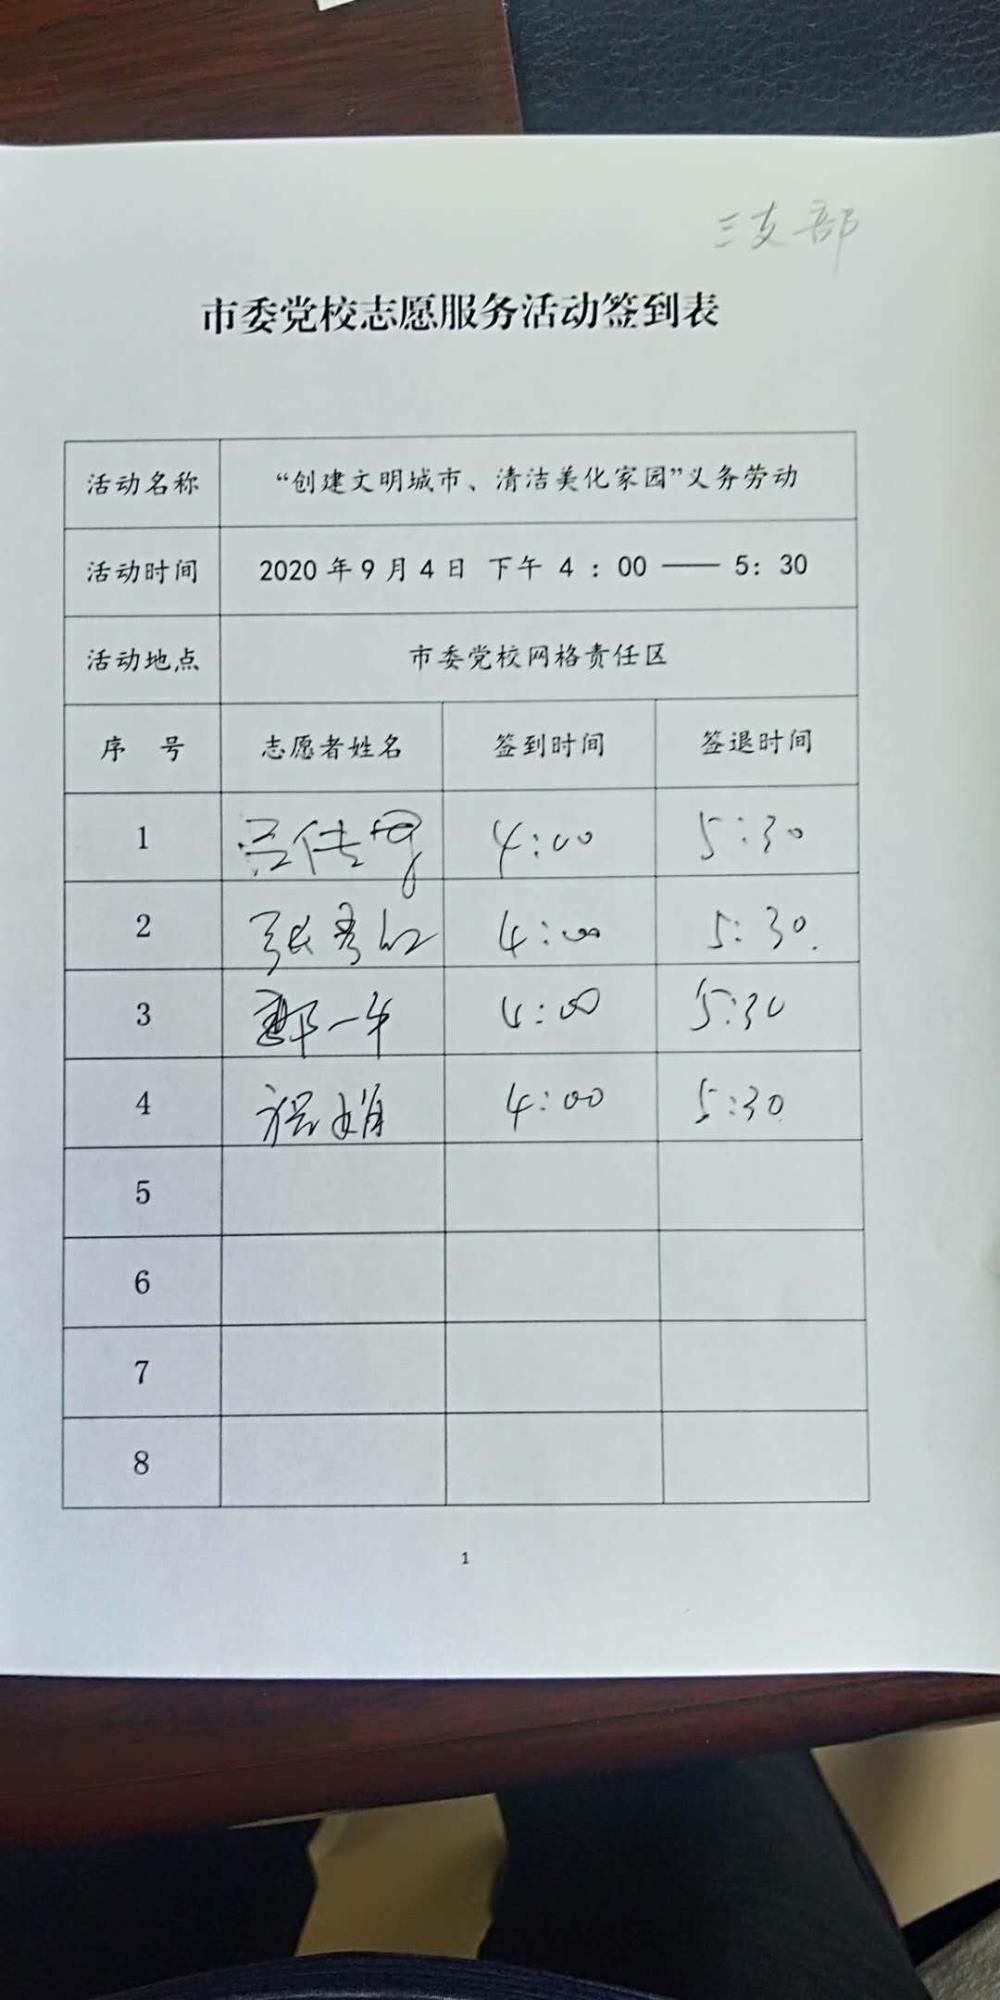 三支部
市委党校志愿服务活动签到表
活动名称 “创建文明城市、清洁美化家园”义务劳动
活动时间 2020年9月4日 下午 4 : 00 —— 5: 30
活动地点 市委党校网格责任区
序 号 志愿者姓名 签到时间 签退时间
1 4:00 5:30
2 张秀红 4:00 5:30.
3 4:00 5:30
4 程娟 4:00 5:30
5
6
7
8
1